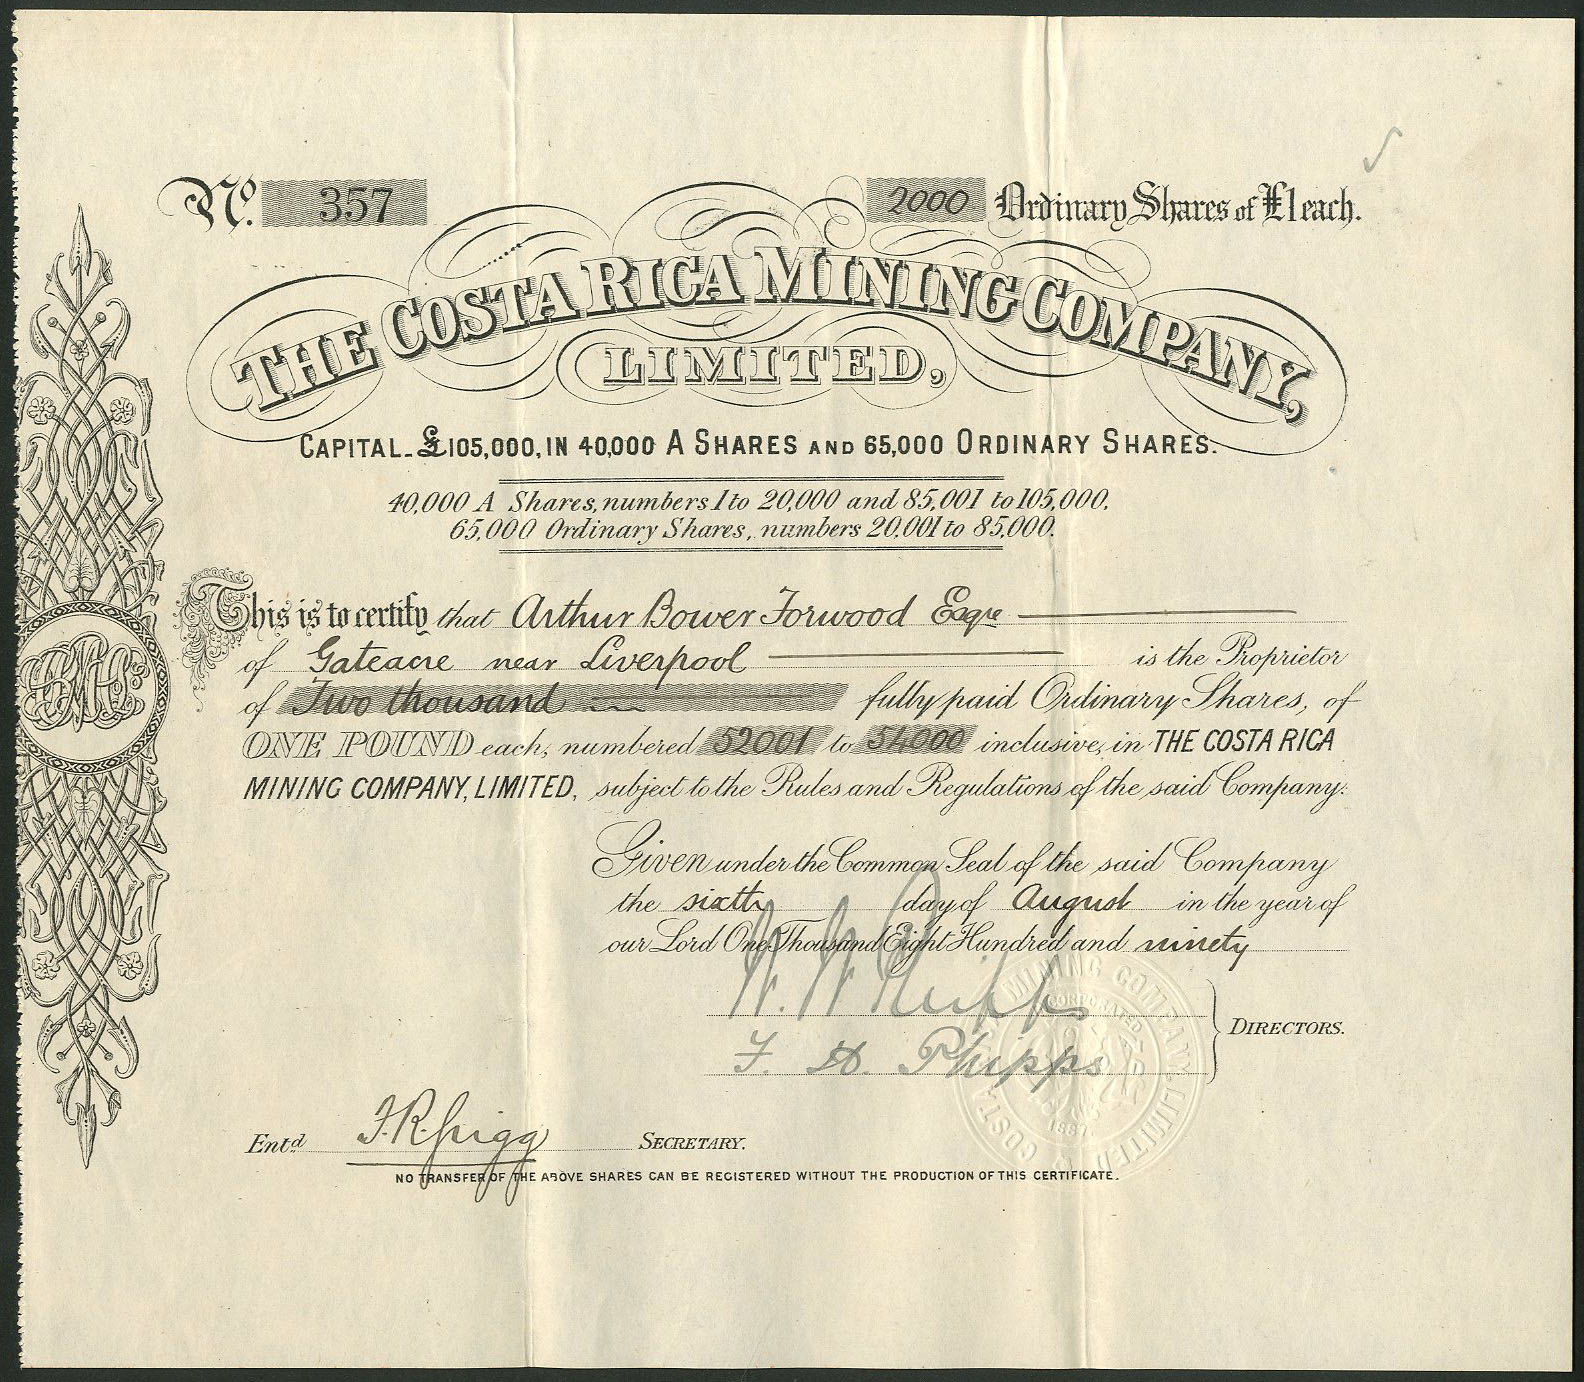 No. 357 2000 Ordinary Shares of £1 each.
THE COSTA RICA MINING COMPANY,
LIMITED,
CAPITAL £105,000, IN 40,000 A SHARES AND 65,000 ORDINARY SHARES.
40,000 A Shares, numbers 1 to 20,000 and 85,001 to 105,000.
65,000 Ordinary Shares, numbers 20,001 to 85,000.
This is to certify that Arthur Bower Forwood Esqre
of Gateacre near Liverpool is the Proprietor
of Two thousand fully paid Ordinary Shares, of
ONE POUND each, numbered 52001 to 54000 inclusive, in THE COSTA RICA
MINING COMPANY, LIMITED, subject to the Rules and Regulations of the said Company.
Given under the Common Seal of the said Company
the sixth day of August in the year of
our Lord One Thousand Eight Hundred and ninety
W. W. Phipps
DIRECTORS.
F. H. Phipps
Entd. F. R. Grigg SECRETARY.
NO TRANSFER OF THE ABOVE SHARES CAN BE REGISTERED WITHOUT THE PRODUCTION OF THIS CERTIFICATE.
COSTA RICA MINING COMPANY LIMITED
INCORPORATED